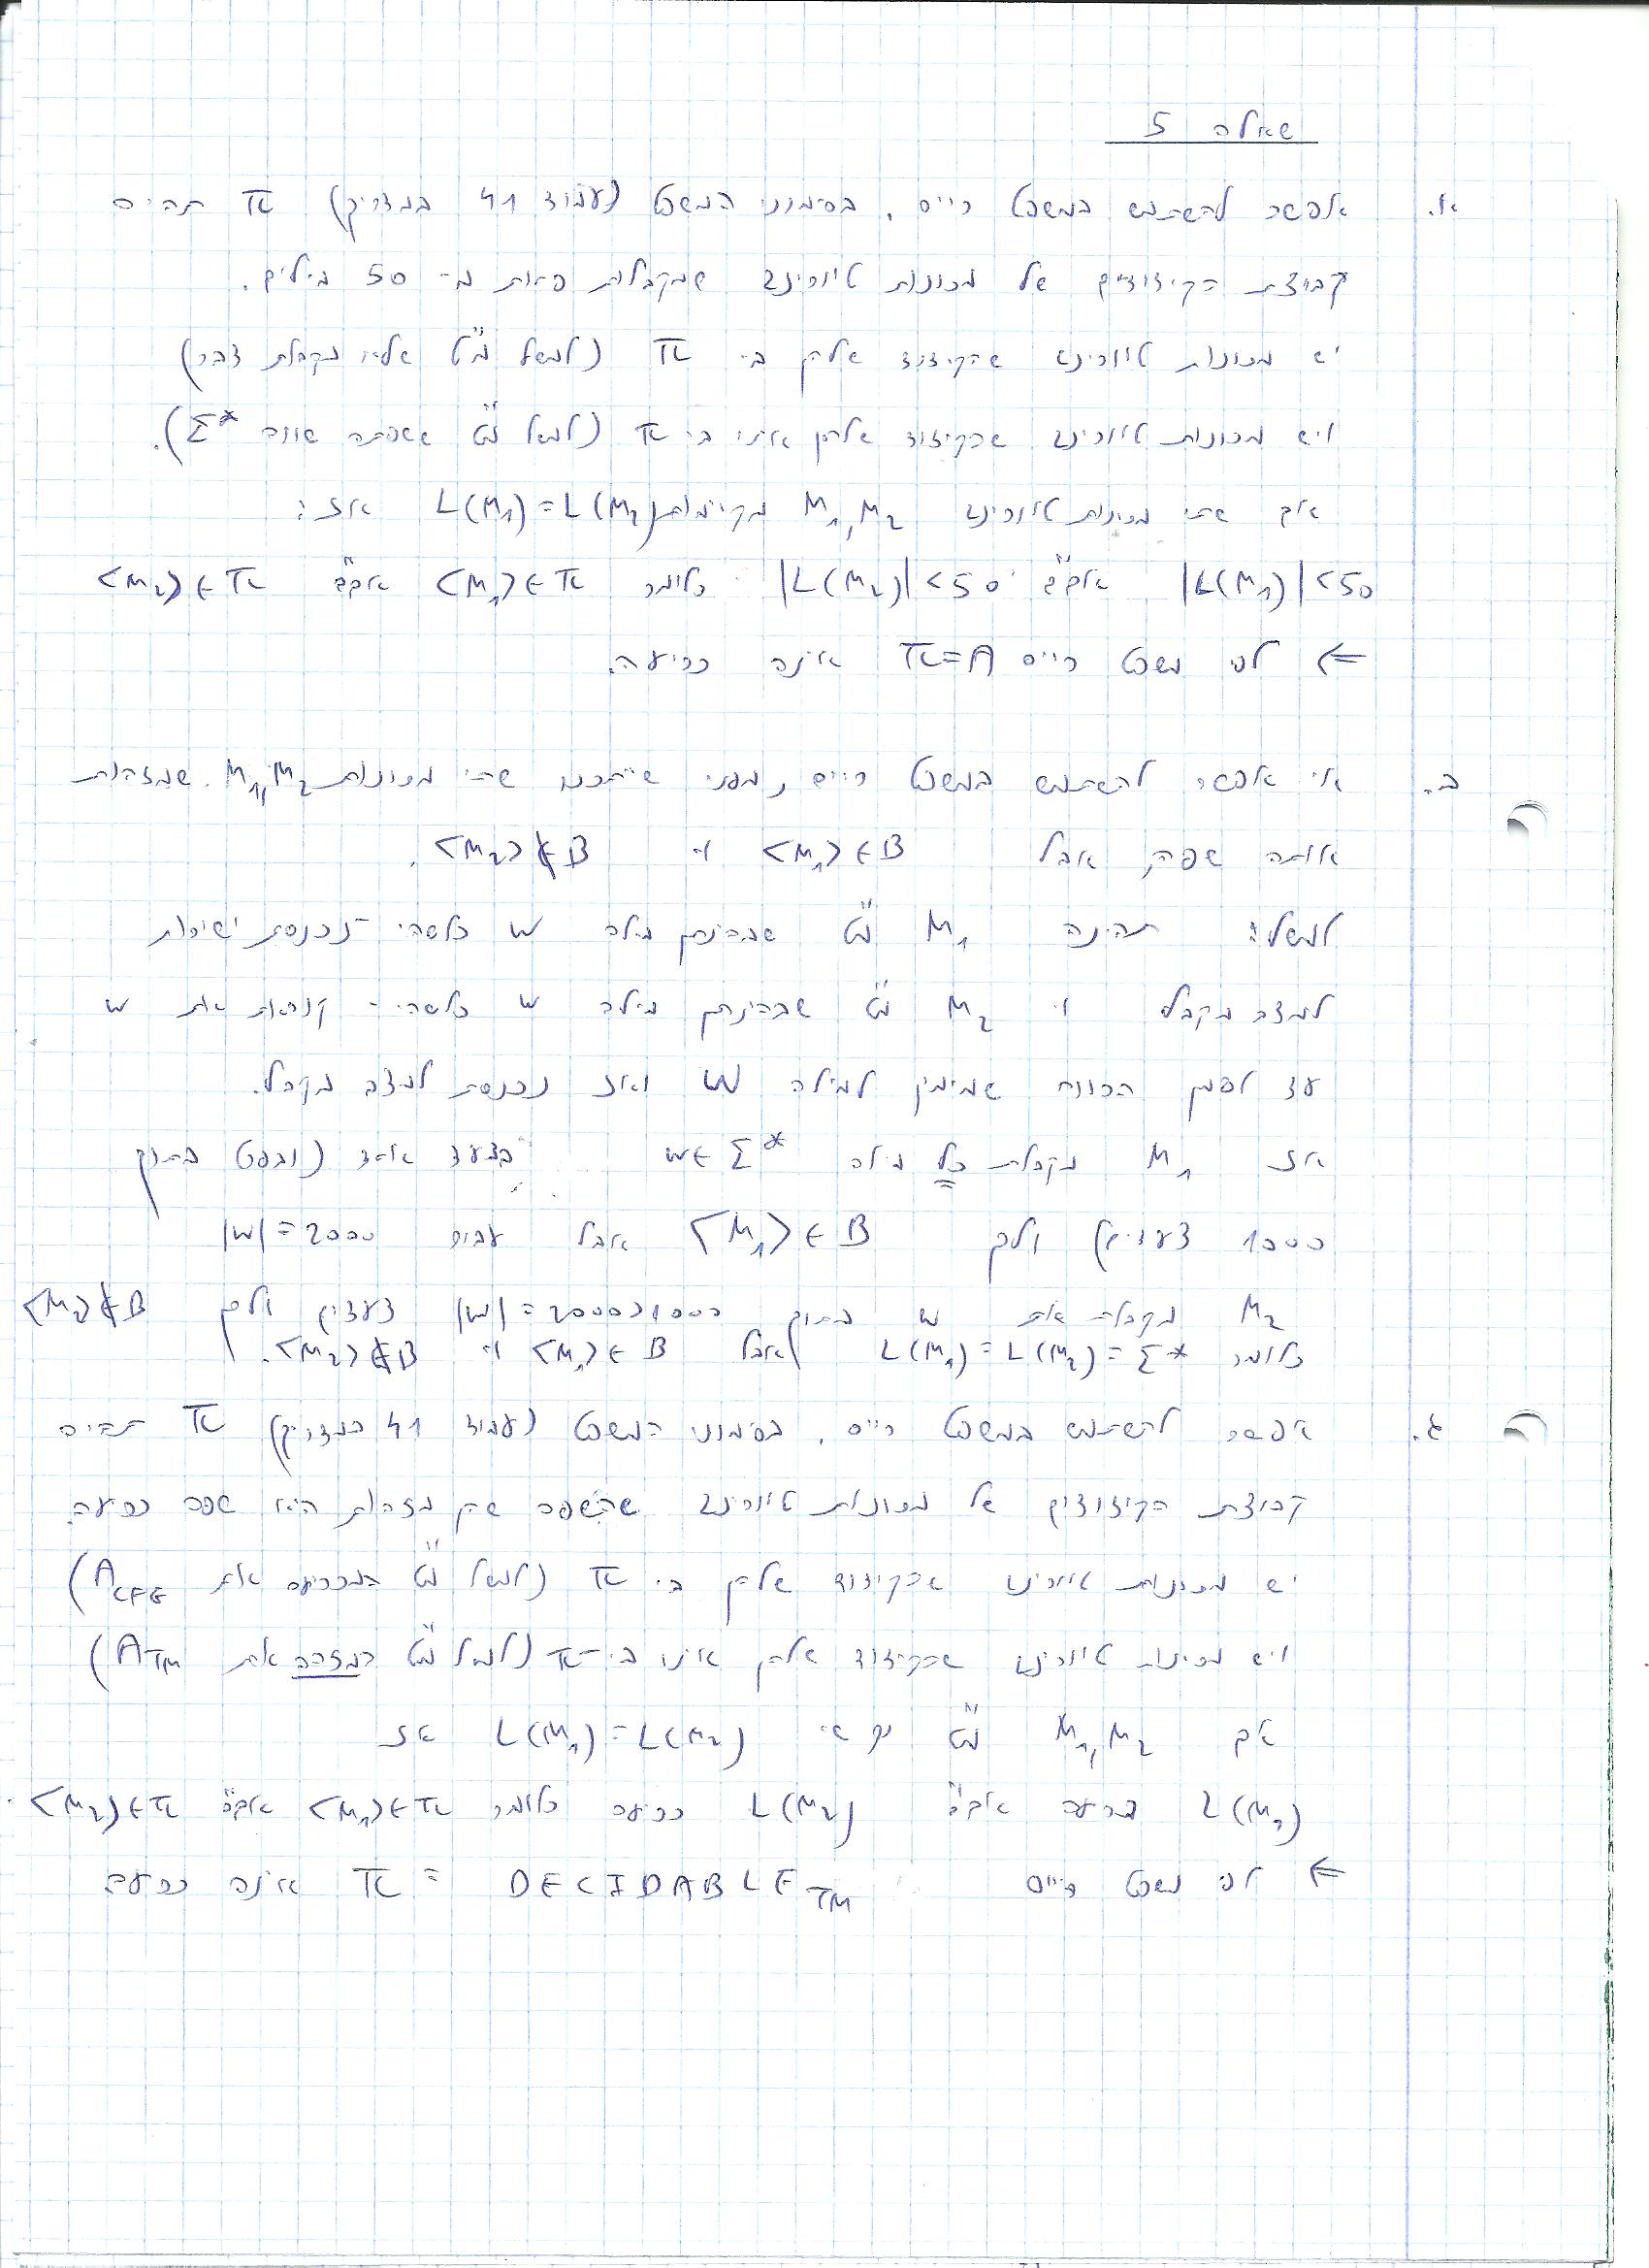 שאלה 5
א. אפשר להשתמש במשפט רייס. בסימוני המשפט (עמוד 41 במדריך) π תהיה
קבוצת הקידודים של מכונות טיורינג שמקבלות פחות מ- 50 מילים.
יש מכונות טיורינג שהקידוד שלהן ב- π (למשל מ"ט שלא מקבלת דבר)
ויש מכונות טיורינג שהקידוד שלהן אינו ב- π (למשל מ"ט ששפתה שווה Σ*).
אם שתי מכונות טיורינג M₁,M₂ מקיימות L(M₁)=L(M₂) אז:
|L(M₁)|<50 אם"ם |L(M₂)|<50 כלומר <M₁>∈π אם"ם <M₂>∈π
⇐ לפי משפט רייס π=A אינה כריעה.
ב. אי אפשר להשתמש במשפט רייס, מפני שייתכנו שתי מכונות M₁,M₂ שמזהות
אותה שפה, אבל <M₁>∈B ו- <M₂>∉B.
למשל: תהינה M₁ מ"ט שבהינתן מילה w כלשהי - נכנסת ישירות
למצב מקבל ו- M₂ מ"ט שבהינתן מילה w כלשהי - קוראת את w
עד לסימן הרווח שמימין למילה w ואז נכנסת למצב מקבל.
אז M₁ מקבלת כל מילה w∈Σ* בצעד אחד (ובפרט בתוך
1000 צעדים) ולכן <M₁>∈B אבל עבור |w|=2000
M₂ מקבלת את w בתוך |w|=2000>1000 צעדים ולכן <M₂>∉B
כלומר L(M₁)=L(M₂)=Σ* אבל <M₁>∈B ו- <M₂>∉B.
ג. אפשר להשתמש במשפט רייס. בסימוני המשפט (עמוד 41 במדריך) π תהיה
קבוצת הקידודים של מכונות טיורינג שהשפה שהן מזהות היא שפה כריעה.
יש מכונות טיורינג שהקידוד שלהן ב- π (למשל מ"ט המכריעה את A_CFG)
ויש מכונות טיורינג שהקידוד שלהן אינו ב- π (למשל מ"ט המזהה את A_TM)
אם M₁,M₂ מ"ט L(M₁)=L(M₂) אז
L(M₁) כריעה אם"ם L(M₂) כריעה כלומר <M₁>∈π אם"ם <M₂>∈π.
⇐ לפי משפט רייס π = DECIDABLE_TM אינה כריעה